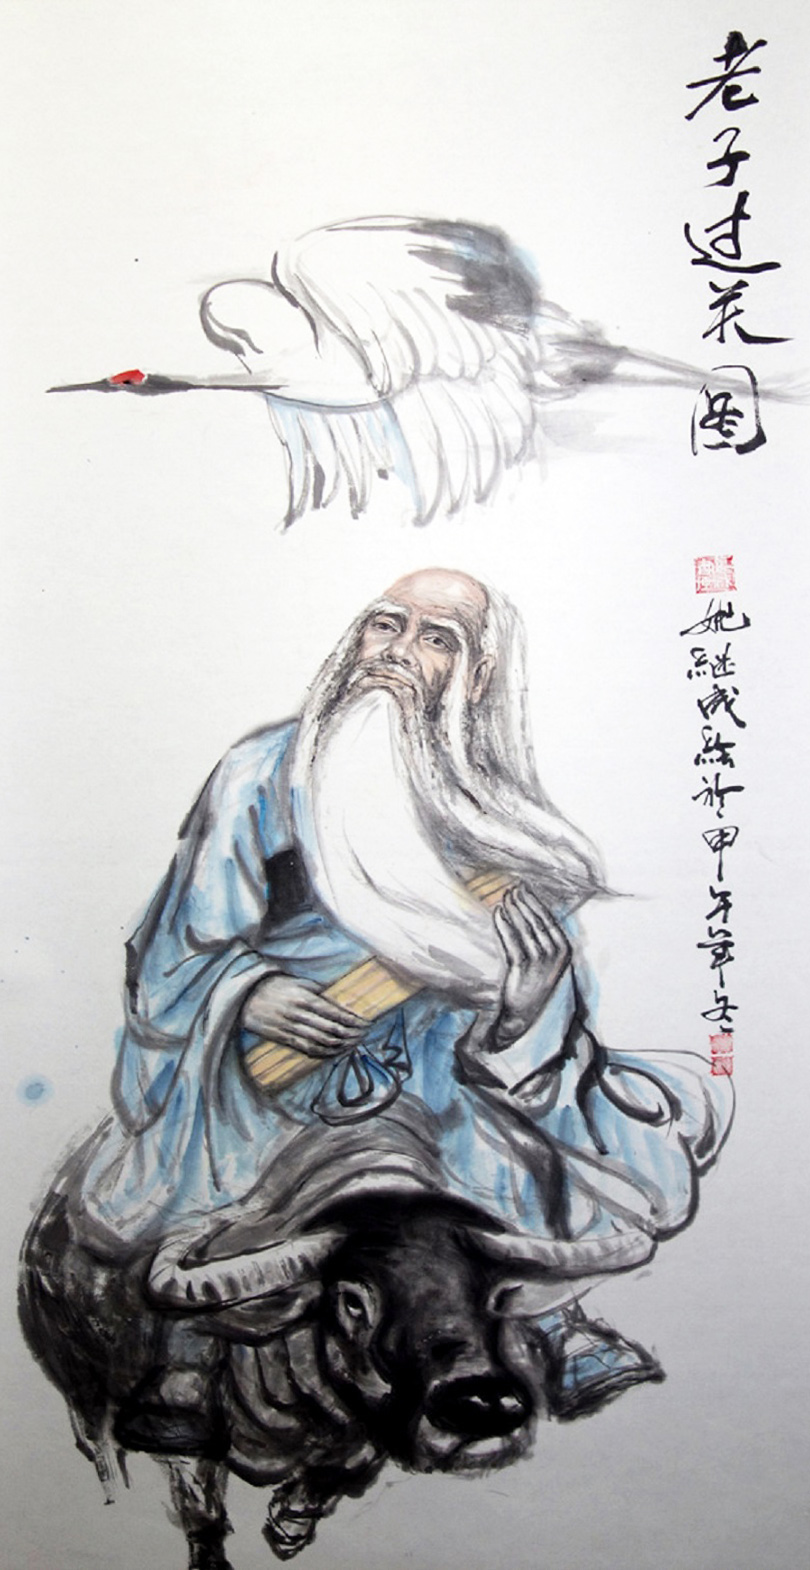 老子过关图
姚继成绘於甲午年冬